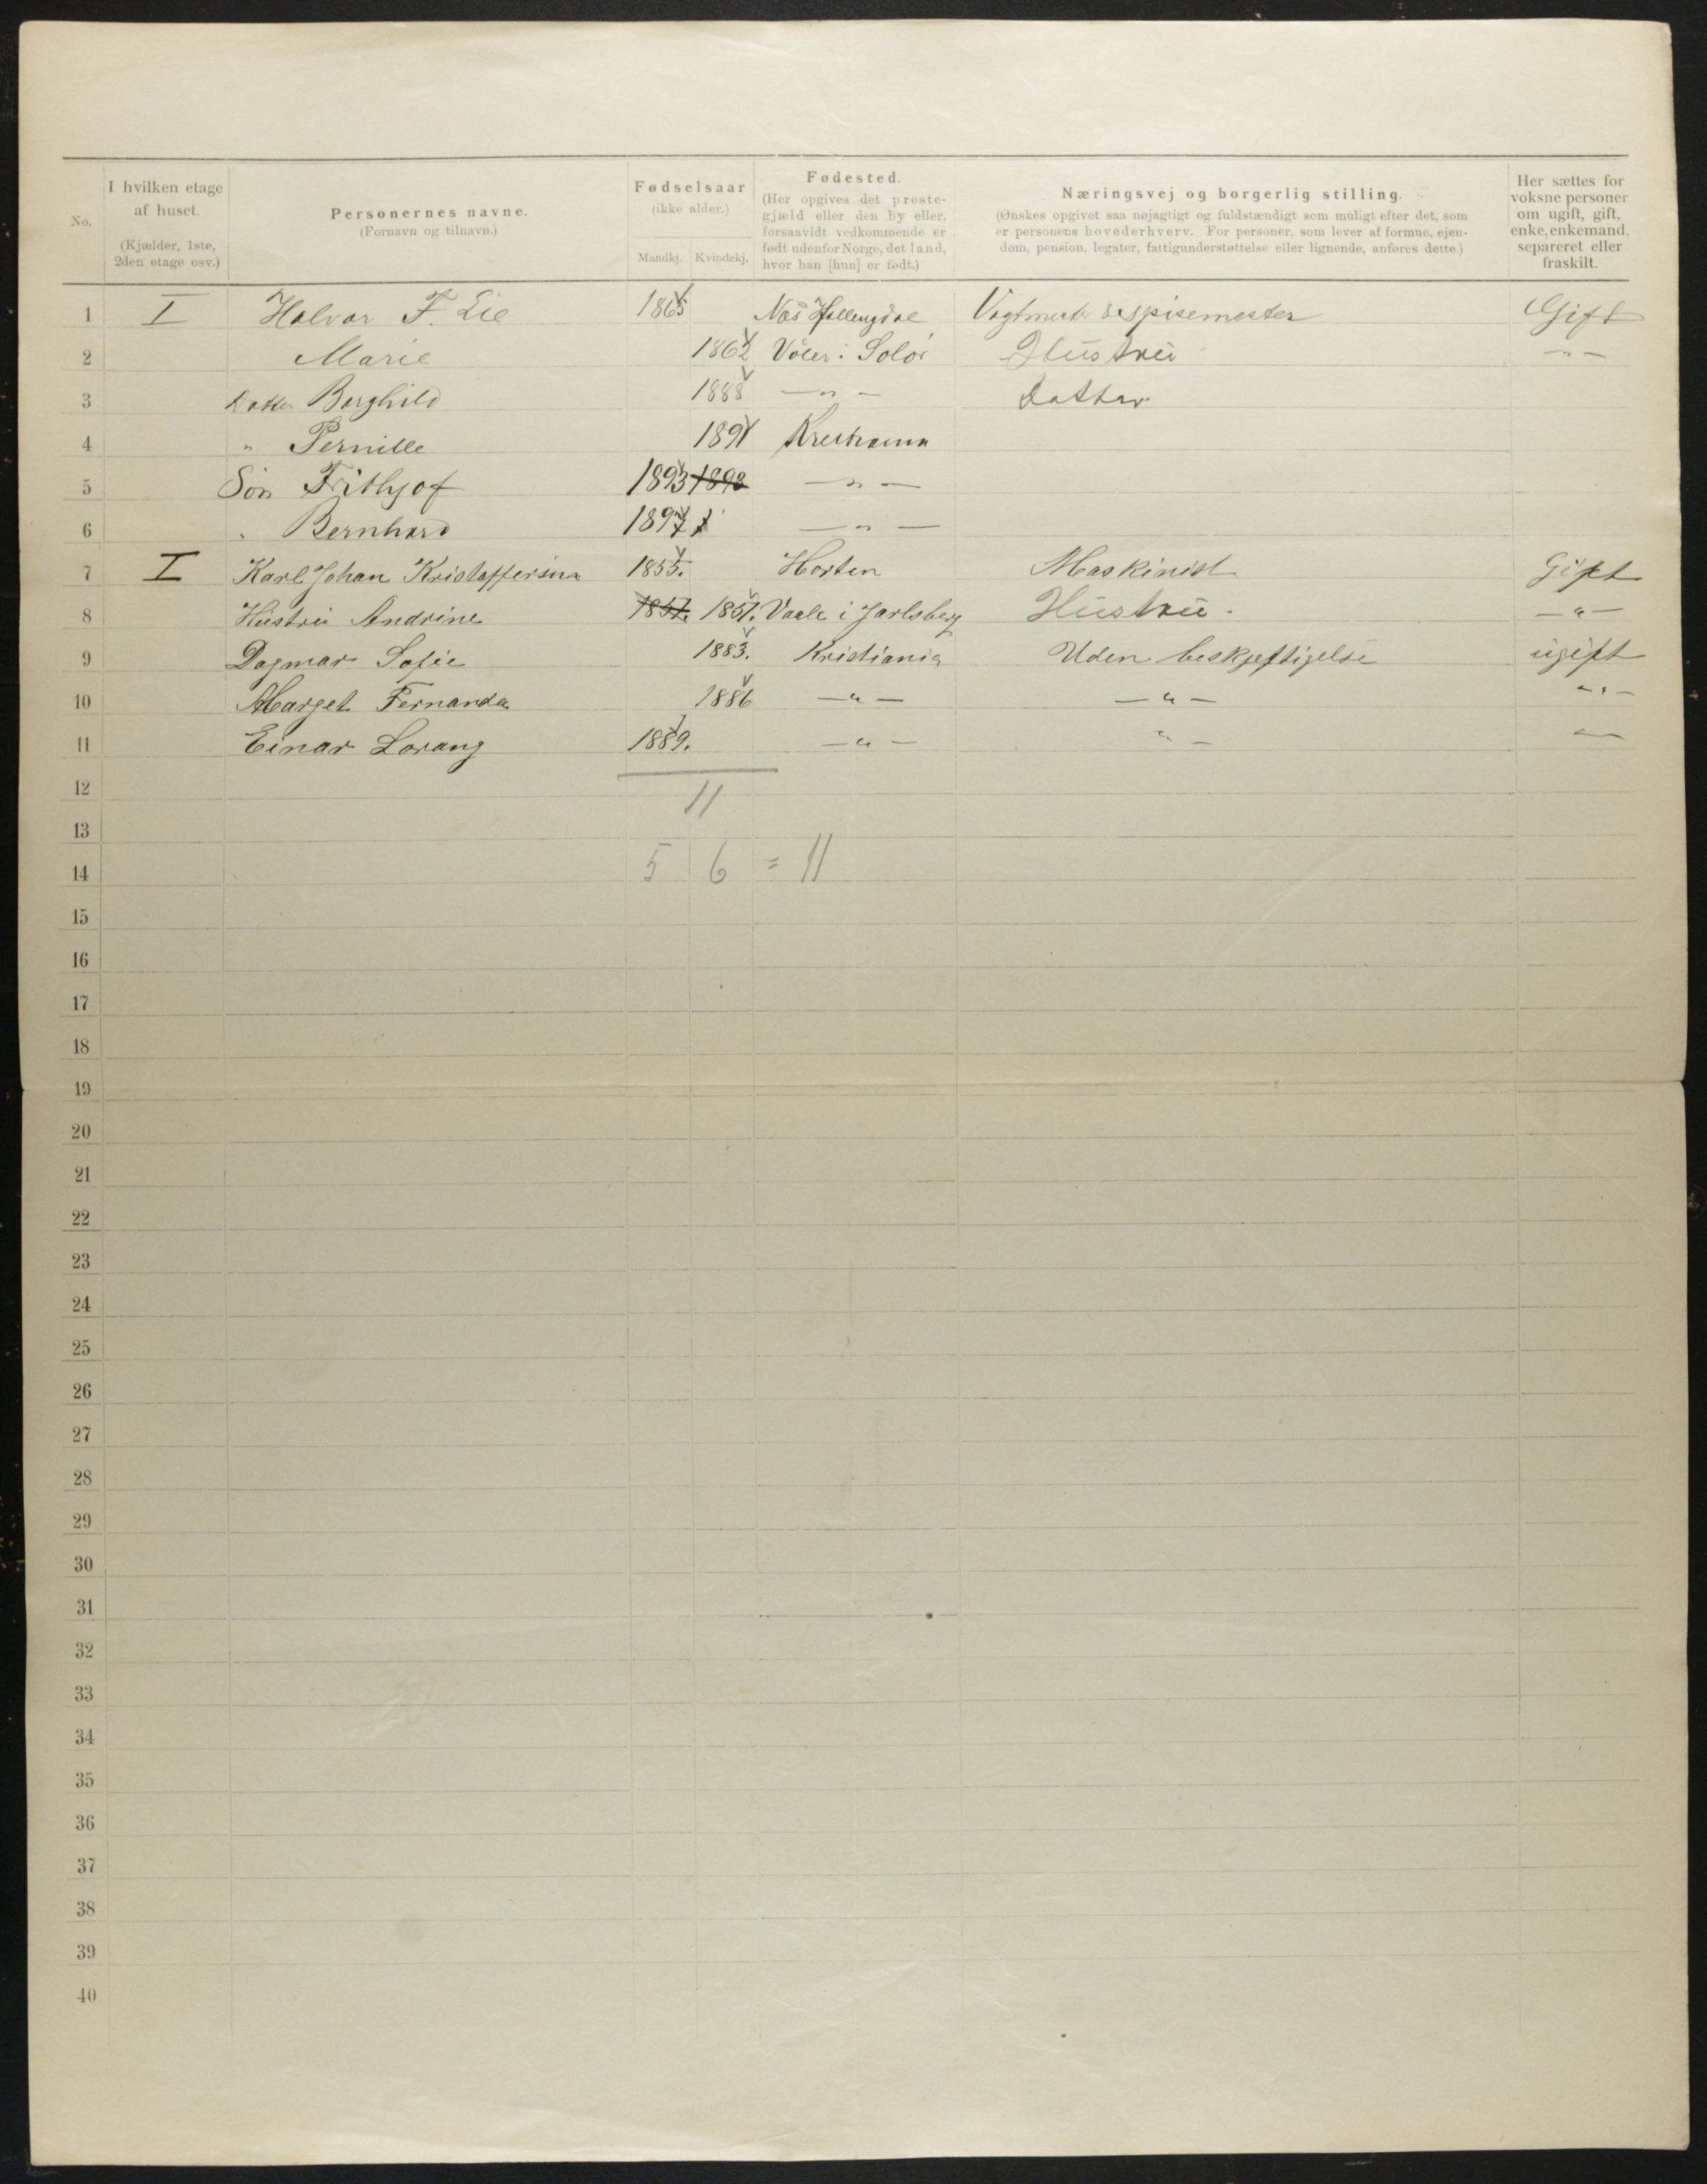 No.
I hvilken etage af huset. (Kjælder, 1ste, 2den etage osv.)
Personernes navne. (Fornavn og tilnavn.)
Fødselsaar (ikke alder.)
Mandkj. Kvindekj.
Fødested. (Her opgives det prestegjæld eller den by eller, forsaavidt vedkommende er født udenfor Norge, det land, hvor han [hun] er født.)
Næringsvej og borgerlig stilling. (Ønskes opgivet saa nøjagtigt og fuldstændigt som muligt efter det, som er personens hovederhverv. For personer, som lever af formue, ejendom, pension, legater, fattigunderstøttelse eller lignende, anføres dette.)
Her sættes for voksne personer om ugift, gift, enke, enkemand, separeret eller fraskilt.
1 I Halvor F. Lie 1865 Næs Hallengdal spisemester Gift
2 Marie 1862 Våler i Solør Hustru — " —
3 Datter Borghild 1888 — " — Datter
4 " Pernille 1891 Kristiania
5 Søn Frithjof 1893 1893 — " —
6 " Bernhard 1897 — " —
7 I Karl Johan Kristoffersen 1855. Horten Maskinist Gift
8 Hustru Andrine 1857. 1857. Vaale i Jarlsberg Hustru. — " —
9 Dagmar Sofie 1883. Kristiania Uden beskjeftigelse ugift
10 Marget Fernanda 1886 — " — — " — — " —
11 Einar Lorang 1889. — " — " — " —
12 11
13
14 5 6 = 11
15
16
17
18
19
20
21
22
23
24
25
26
27
28
29
30
31
32
33
34
35
36
37
38
39
40